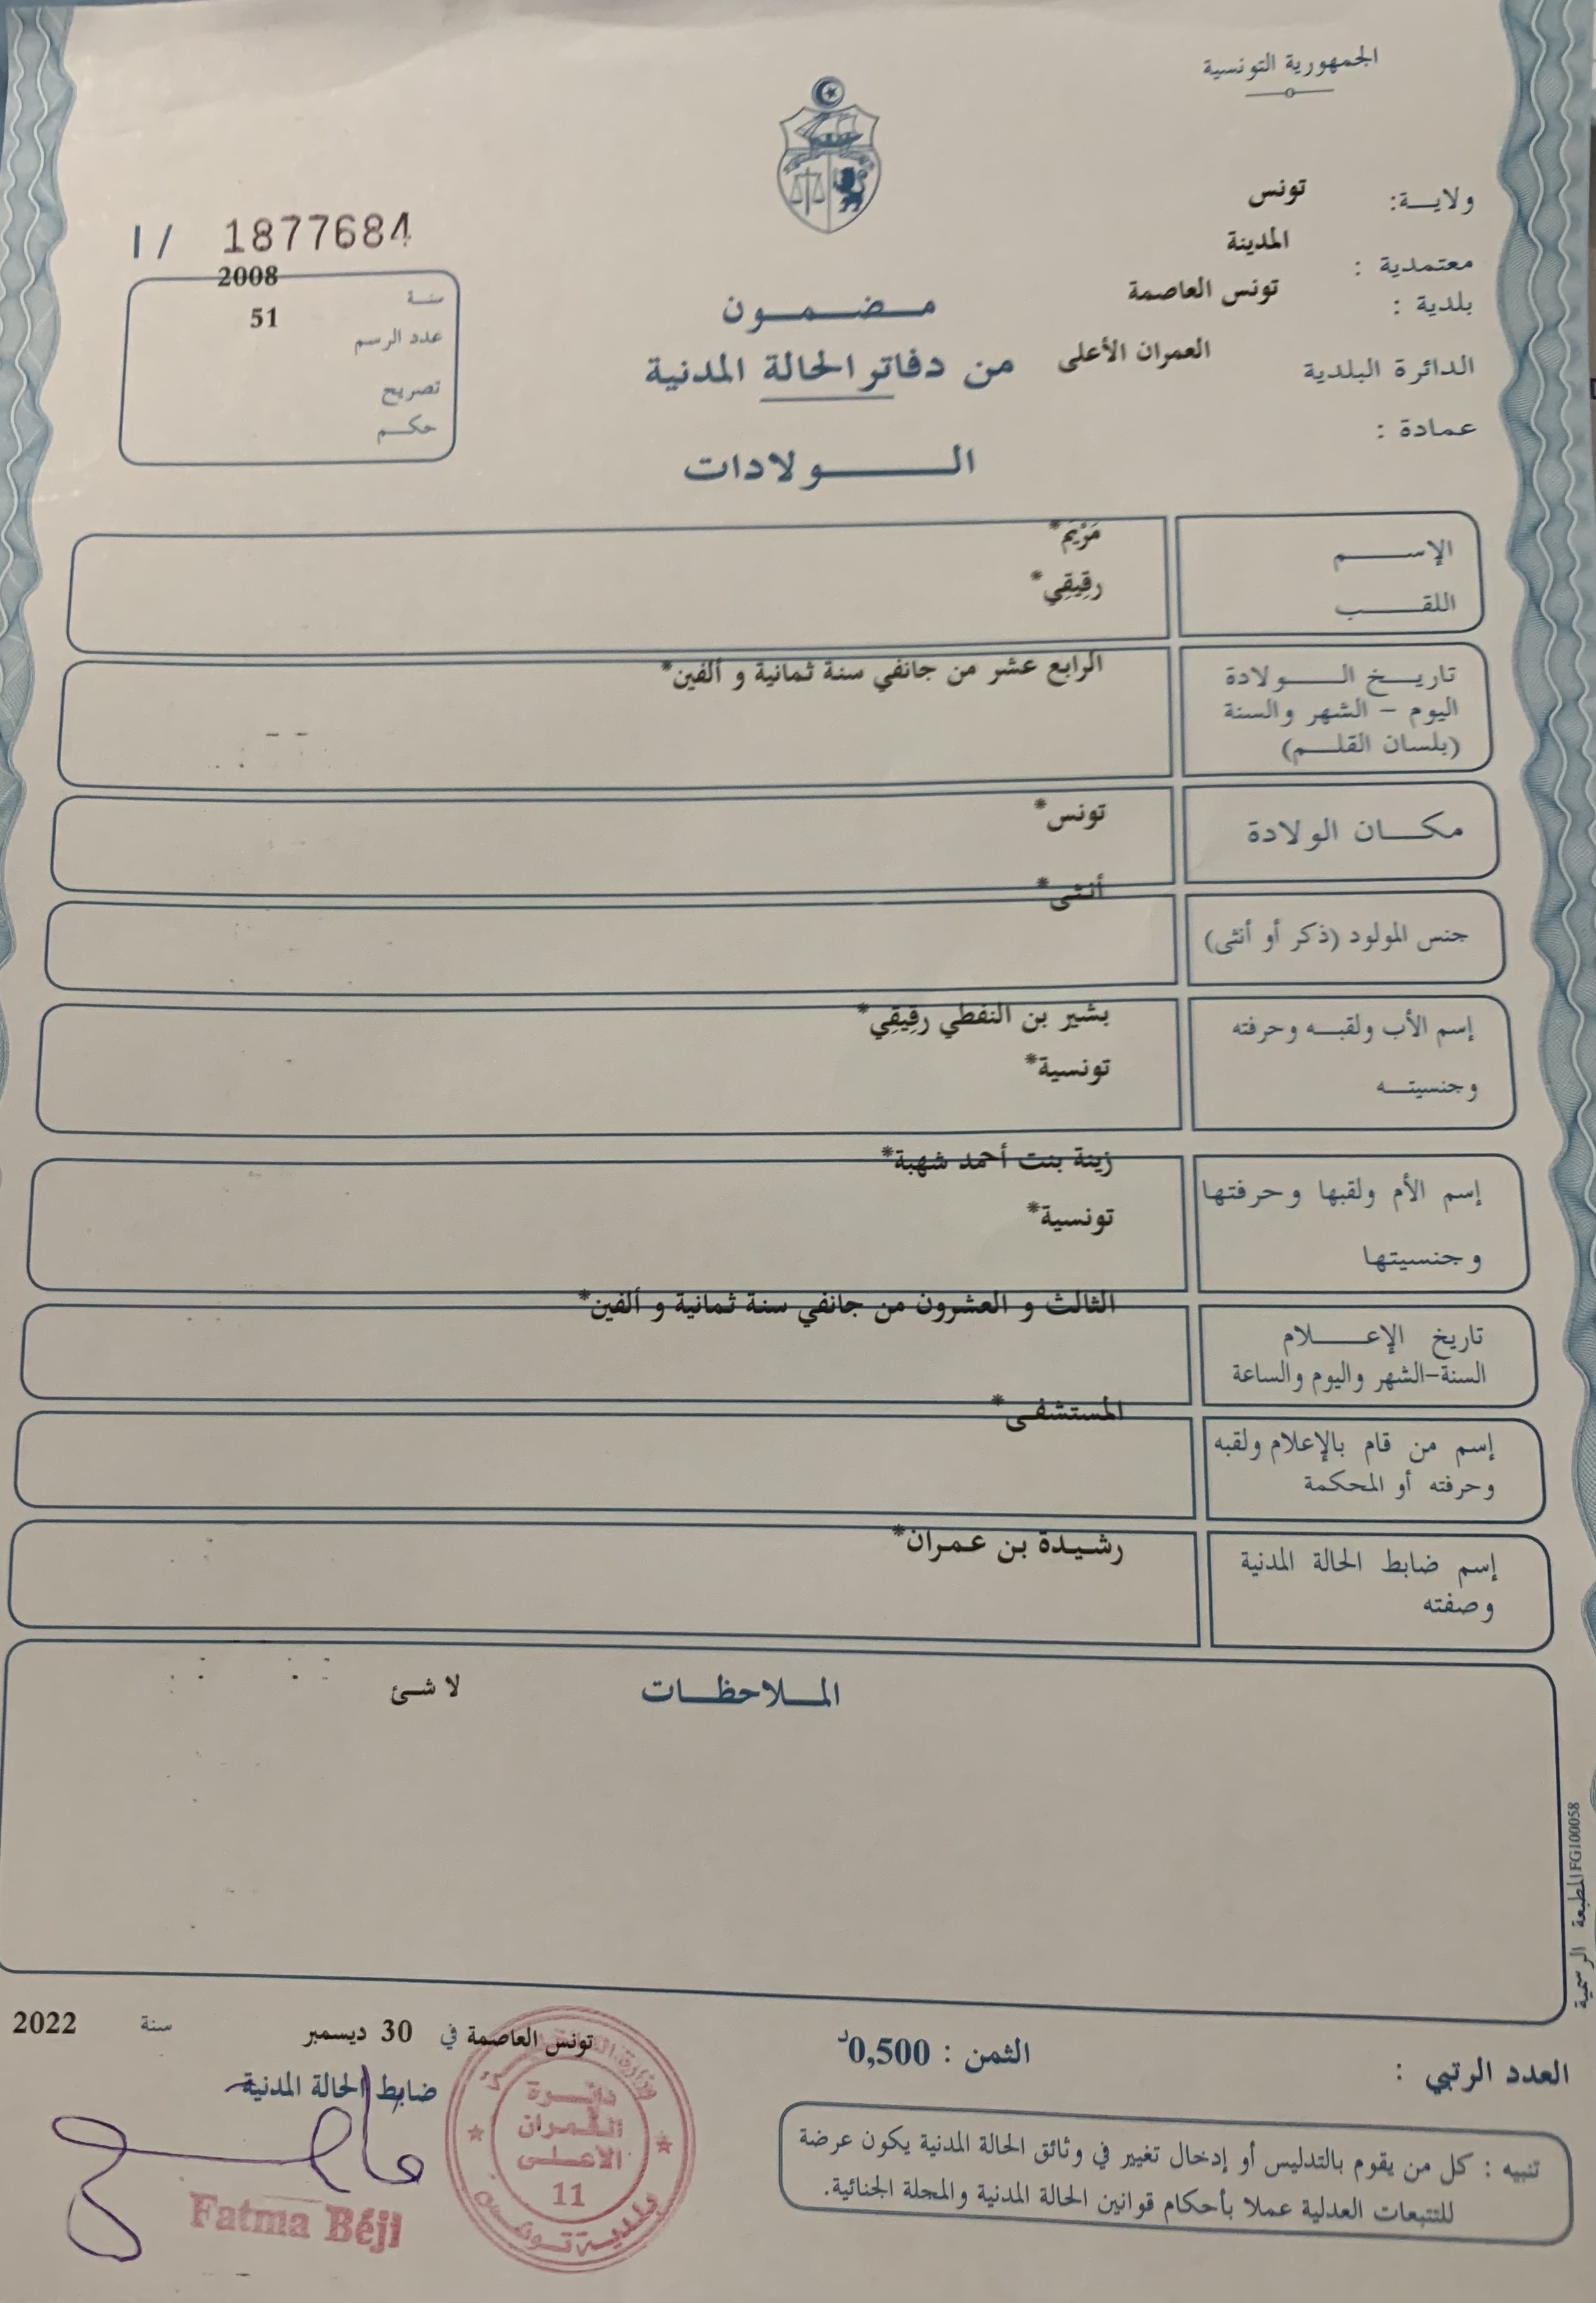 الجمهورية التونسية
ولايـــة: تونس
معتمدية : المدينة
بلدية : تونس العاصمة
الدائرة البلدية العمران الأعلى
عمادة :
مـــضـــمـــون
من دفاتر الحالة المدنية
الـــــــولادات
1 / 1877684
سنة 2008
عدد الرسم 51
تصريح
حكـــم
الإســـــــم مَرْيَم*
اللقـــــب رقِيقِي*
تاريــخ الـــــولادة الرابع عشر من جانفي سنة ثمانية و ألفين*
اليوم – الشهر والسنة
(بلسان القلـــم)
مكـــان الولادة تونس*
جنس المولود (ذكر أو أنثى) أنثى*
إسم الأب ولقبــه وحرفته بشير بن النفطي رقِيقِي*
وجنسيتــه تونسية*
إسم الأم ولقبها وحرفتها زينة بنت أحمد شهبة*
وجنسيتها تونسية*
تاريخ الإعـــــلام الثالث و العشرون من جانفي سنة ثمانية و ألفين*
السنة-الشهر واليوم والساعة
إسم من قام بالإعلام ولقبه المستشفى*
وحرفته أو المحكمة
إسم ضابط الحالة المدنية رشيدة بن عمران*
وصفته
المـــلاحظـــات لا شئ
المطبعة الرسمية FG100058
تونس العاصمة في 30 ديسمبر سنة 2022
ضابط الحالة المدنية
Fatma Béji
دائــرة
العمران
الأعلــى
11
بلدية تونس
الثمن : 0,500د
العدد الرتبي :
تنبيه : كل من يقوم بالتدليس أو إدخال تغيير في وثائق الحالة المدنية يكون عرضة
للتتبعات العدلية عملا بأحكام قوانين الحالة المدنية والمجلة الجنائية.